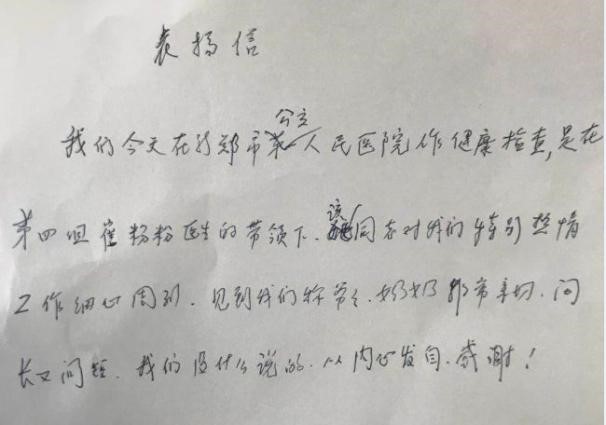 表扬信
公立
我们今天在新郑市第一人民医院作健康检查,是在
第四组崔粉粉医生的带领下.该同志对我们特别热情
工作细心周到.见到我们称爷爷.奶奶非常亲切.问
长又问短.我们没什么说的.从内心发自.感谢!